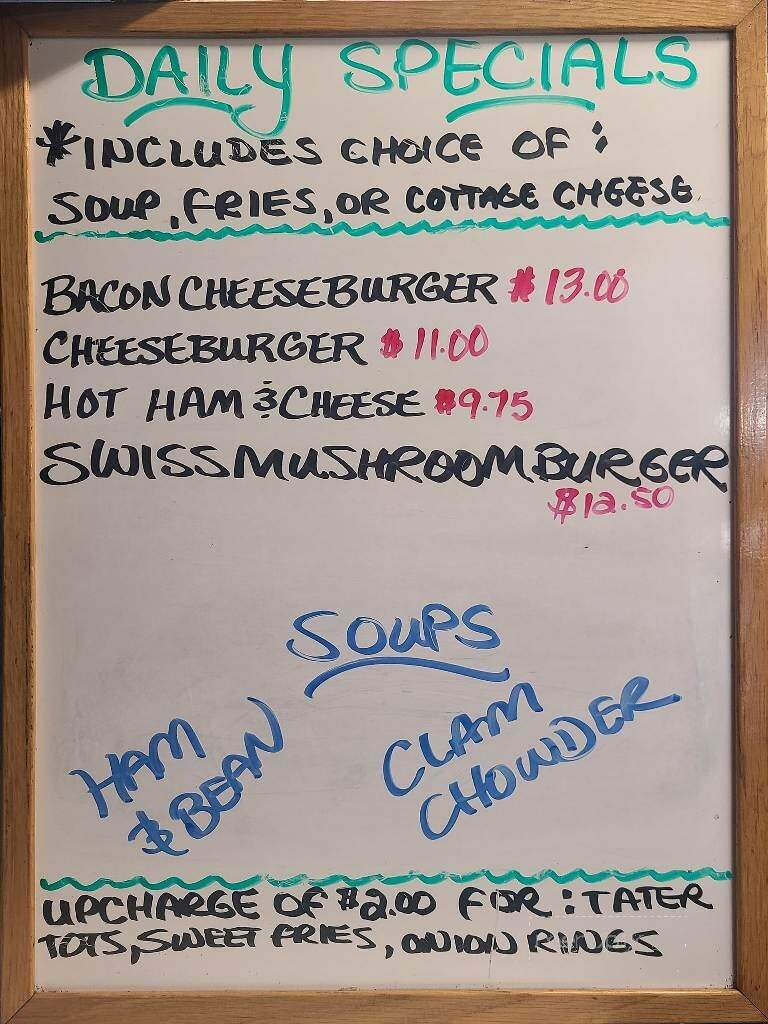 DAILY SPECIALS
*INCLUDES CHOICE OF:
SOUP, FRIES, OR COTTAGE CHEESE
BACON CHEESEBURGER $13.00
CHEESEBURGER $11.00
HOT HAM & CHEESE $9.75
SWISS MUSHROOM BURGER
$12.50
SOUPS
HAM
& BEAN
CLAM
CHOWDER
UPCHARGE OF $2.00 FOR: TATER
TOTS, SWEET FRIES, ONION RINGS